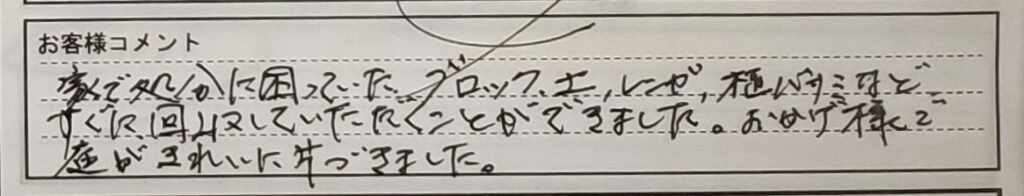 お客様コメント
家で処分に困っていた、ブロック、土、レンガ、植バサミなど
すぐに回収していただくことができました。おかげ様で
庭がきれいに片づきました。